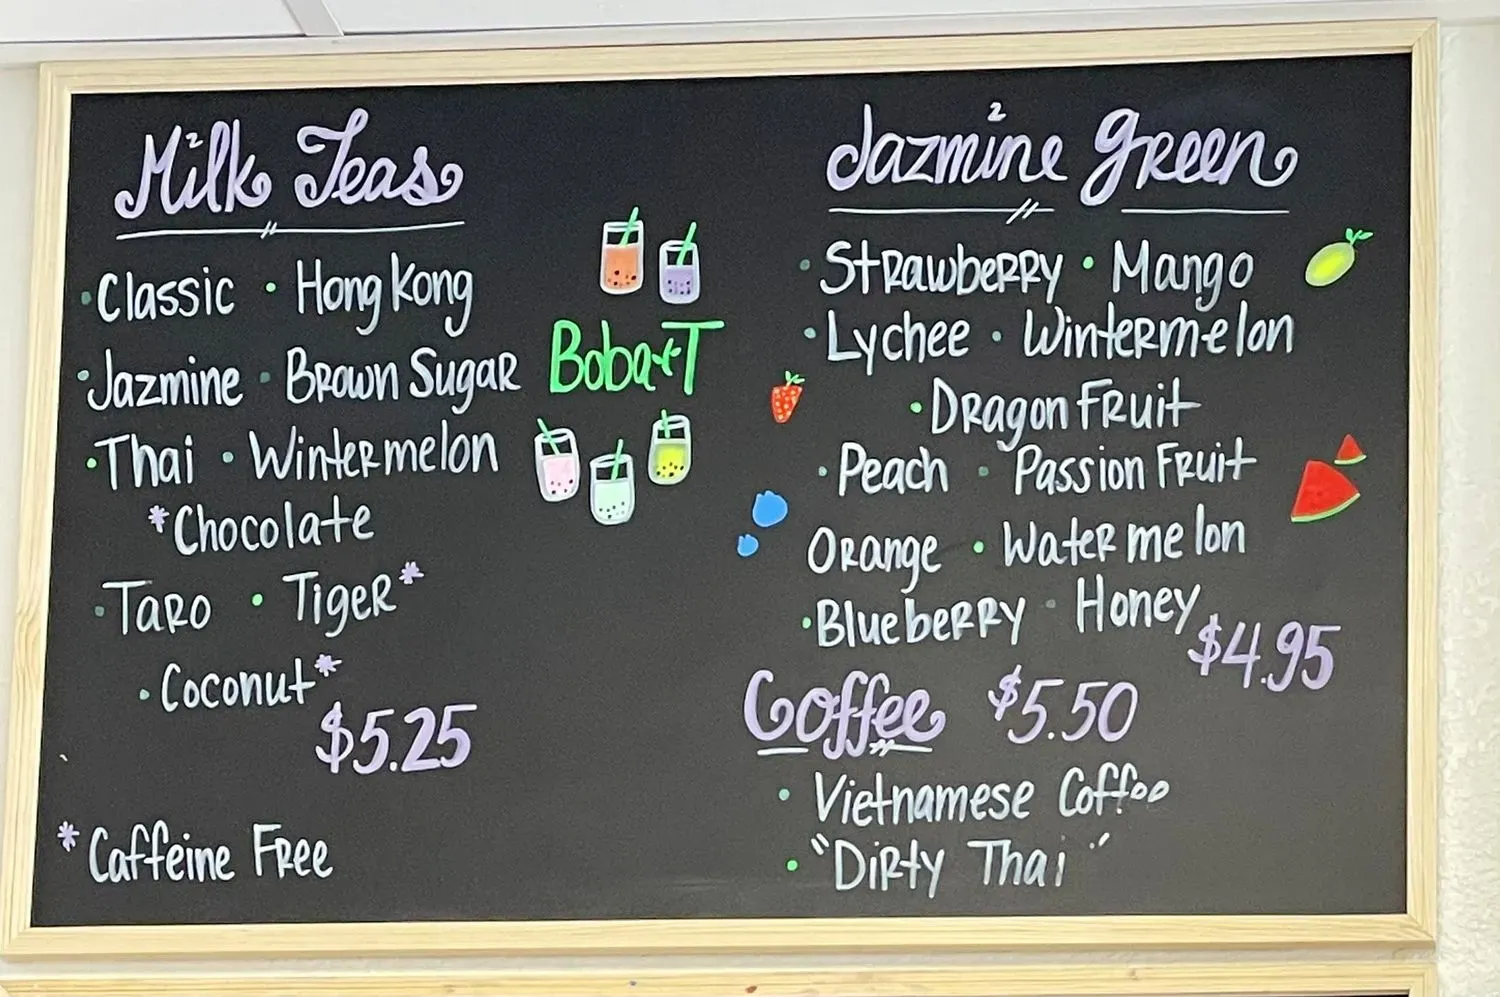 Milk Teas
· Classic · Hong Kong
· Jazmine · Brown Sugar
· Thai · Wintermelon
*Chocolate
· Taro · Tiger*
· Coconut*
$5.25
* Caffeine Free
Boba+T
Jazmine Green
· Strawberry · Mango
· Lychee · Wintermelon
· Dragon Fruit
· Peach · Passion Fruit
Orange · Watermelon
· Blueberry · Honey
$4.95
Coffee $5.50
· Vietnamese Coffee
· "Dirty Thai"